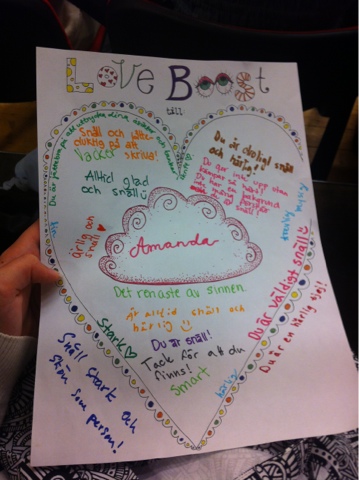 Love Boost
till:
Du är jättebra på att uttrycka dina åsikter och tankar
Snäll och jätte-
duktig på att
skriva!
Vacker
Alltid glad
och snäll
ärlig och
snäll
Du är otroligt snäll
och härlig!
Du ger inte upp
Amanda
Det renaste av sinnen
Är alltid snäll och
härlig
Du är snäll!
Tack för att du
finns!
Smart
Stark
Snäll stark och
skön som person!
Du är väldigt snäll
Du är en härlig tjej!
härlig!